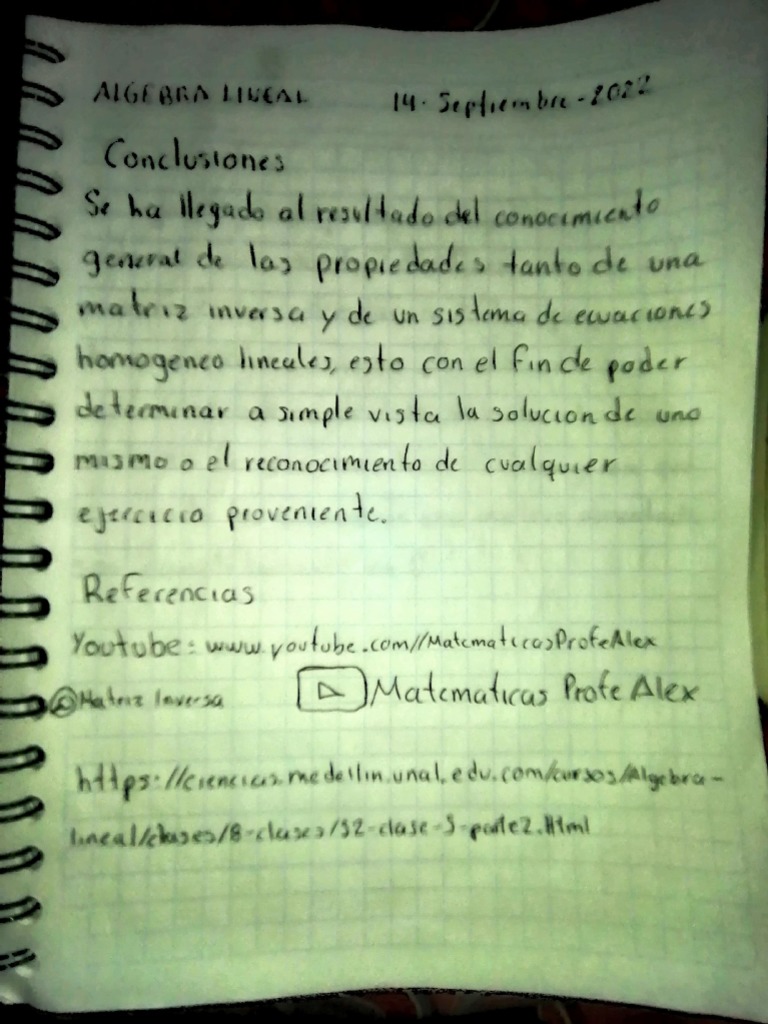 ALGEBRA LINEAL 14-Septiembre-2022
Conclusiones
Se ha llegado al resultado del conocimiento
general de las propiedades tanto de una
matriz inversa y de un sistema de ecuaciones
homogeneo lineales, esto con el fin de poder
determinar a simple vista la solucion de uno
mismo o el reconocimiento de cualquier
ejercicio proveniente.
Referencias
Youtube: www.youtube.com//MatematicasProfeAlex
Matriz Inversa Matematicas Profe Alex
https://ciencias.medellin.unal.edu.com/cursos/Algebra-
lineal/clases/8-clases/52-clase-5-parte2.Html